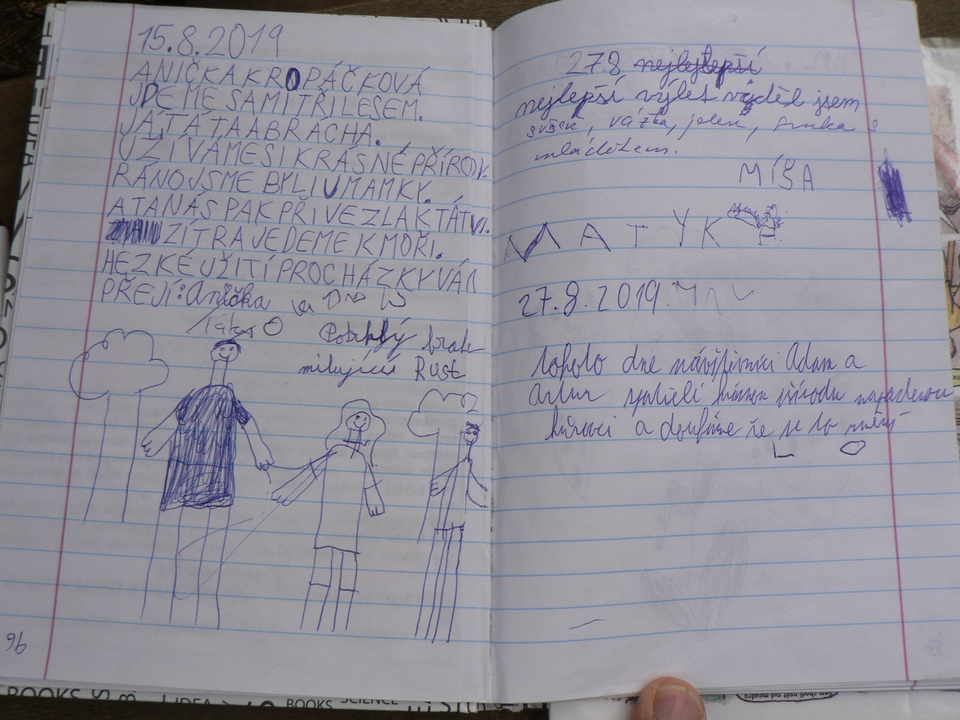 15.8.2019
ANIČKA KROPÁČKOVÁ
JDEME SAMI TŘI LESEM.
JÁ, TÁTA A BRÁCHA.
UŽÍVÁME SI KRÁSNÉ PŘÍRODY.
RÁNO JSME BYLI U MAMKY.
A TA NÁS PAK PŘIVEZLA K TÁTVI.
ZÍTRA JEDEME K MOŘI.
HEZKÉ UŽITÍ PROCHÁZKY VÁM
PŘEJÍ: Anička
Táta
milující
96
27.8 nejlepší
nejlepší výlet viděl jsem
vážka, jelen, srnka s
mládětem.
MÍŠA
MATYK
27.8.2019
tohoto dne návštěvníci Adam a
Artur spatřili krásnou přírodu napadenou
kůrovci a doufáme že se to změní
BOOKS
IDEA
BOOKS
SCIENCE